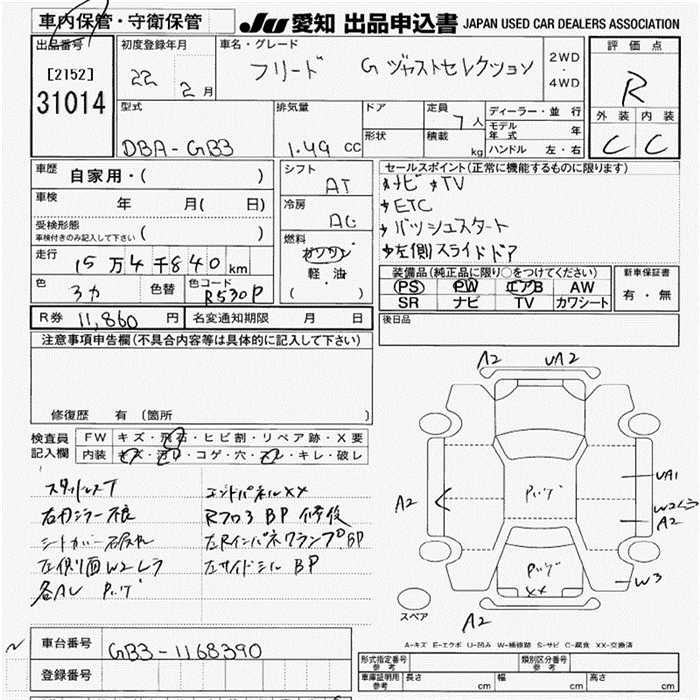 車内保管・守衛保管 JU 愛知 出品申込書 JAPAN USED CAR DEALERS ASSOCIATION
出品番号 初度登録年月 車名・グレード 評価点
[2152] 22年 2月 フリード G ジャストセレクション 2WD・4WD R
31014
型式 排気量 ドア 定員 7人 ディーラー・並行 外装 内装
DBA-GB3 1.49 cc 形状 積載 kg モデル年式 年 C C
ハンドル 左・右
車歴 自家用・( ) シフト AT セールスポイント(正常に機能するものに限ります)
車検 年 月( 日) 冷房 AC ナビ TV
受検形態 ( ) ETC
車検付きのみ記入して下さい 燃料 プッシュスタート
走行 15万4千840km ガソリン 左側スライドドア
軽油
( )
色 色替 色コード R530P 装備品(純正品に限り○をつけてください) 新車保証書
PS PW エアB AW 有・無
SR ナビ TV カワシート
R券 11,860円 名変通知期限 月 日 後日品
注意事項申告欄(不具合内容等は具体的に記入して下さい)
修復歴 有(箇所
検査員 FW キズ・飛石・ヒビ割・リペア跡・X要
記入欄 内装 キズ・汚れ・コゲ・穴・スレ・キレ・破レ
スタッドレスT エンドパネルXX
右ドアミラー R フロア BP 修後
シートカバー 左Rインパネクランプ BP
左側面W2 左サイドシル BP
各AW
A2 UA2
A2 UA1
W2
A2
W3
XX
A2
スペア
A-キズ E-エクボ U-凹み W-補修跡 S-サビ C-腐食 XX-交換済
車台番号 GB3-1168390
登録番号
形式指定番号 参考 類別区分番号 参考
車庫証明用 参考 長さ cm 幅 cm 高さ cm